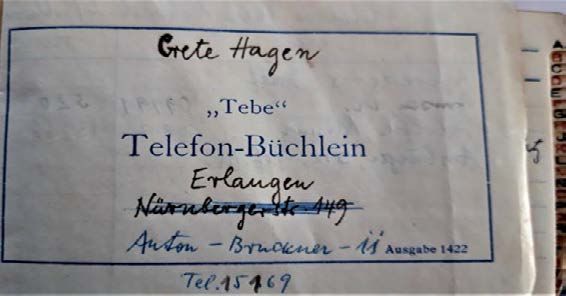 Grete Hagen
„Tebe“
Telefon-Büchlein
Erlangen
Nürnberger Str. 149
Anton - Bruckner - 11 Ausgabe 1422
Tel. 15169
A